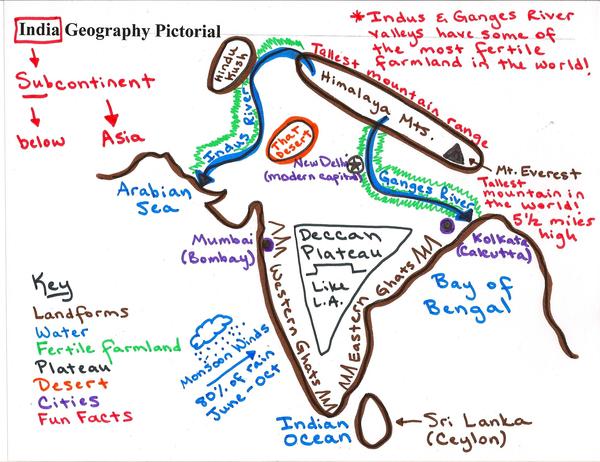 India Geography Pictorial
Subcontinent
below
Asia
*Indus & Ganges River
valleys have some of
the most fertile
farmland in the world!
Hindu
Kush
Tallest mountain range
Himalaya Mts.
Indus River
Thar
Desert
New Delhi
(modern capital)
Ganges River
Mt. Everest
Tallest
mountain in
the world!
5½ miles
high
Arabian
Sea
Mumbai
(Bombay)
Deccan
Plateau
Like
L.A.
Kolkata
(Calcutta)
Western Ghats
Eastern Ghats
Bay of
Bengal
Key
Landforms
Water
Fertile farmland
Plateau
Desert
Cities
Fun Facts
Monsoon Winds
80% of rain
June-Oct
Indian
Ocean
Sri Lanka
(Ceylon)